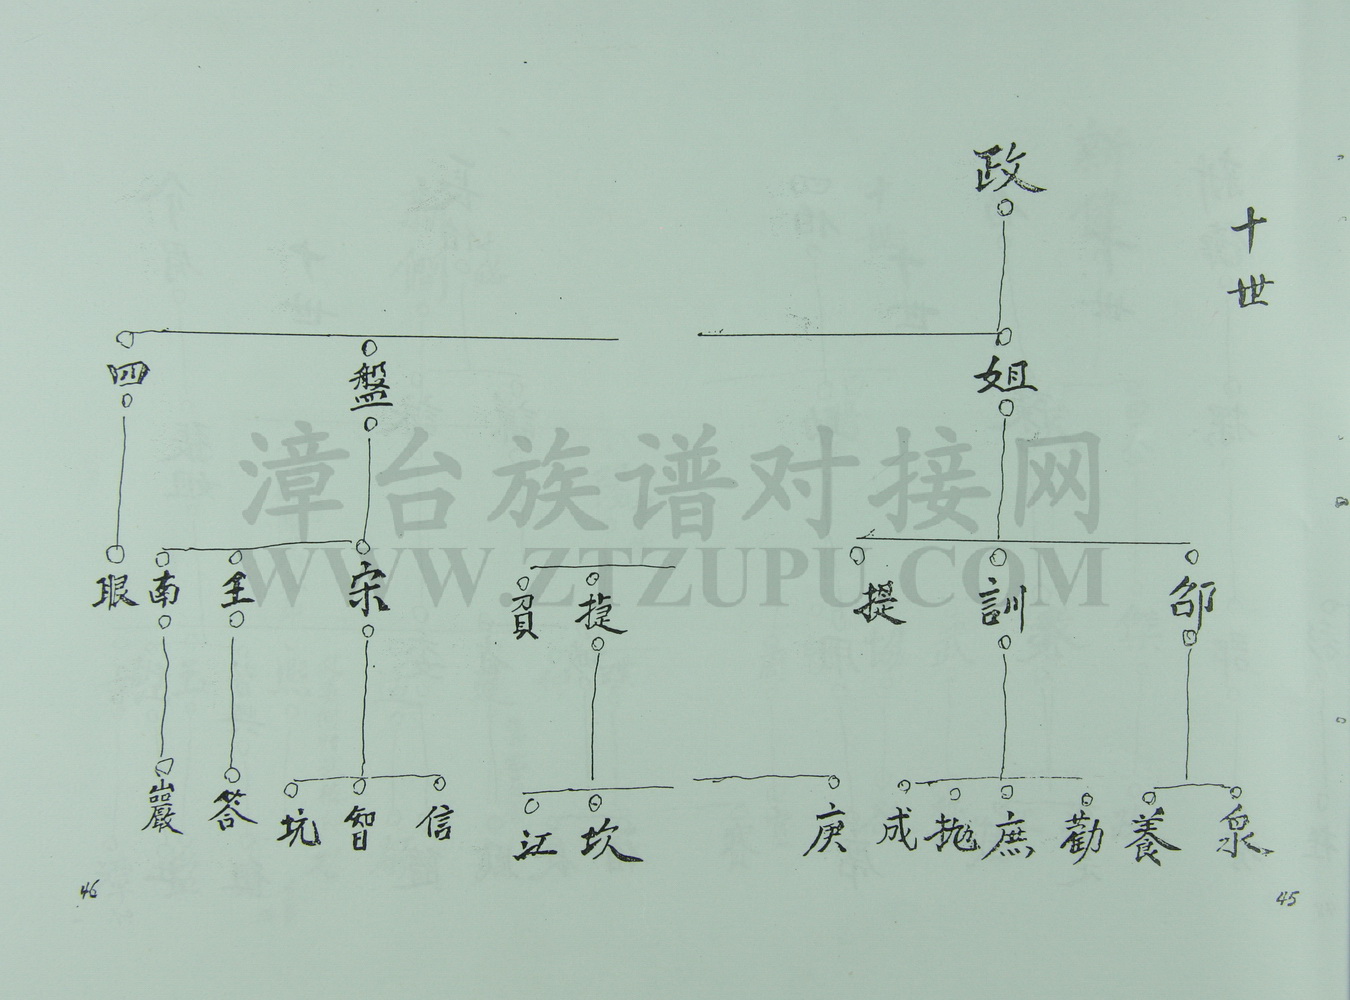 十世
政
姐
盤
四
邵
訓
提
捷
貟
宋
全
南
珢
泉
養
勸
庶
抛
成
庚
坎
江
信
智
坑
答
巖
45
46
漳台族谱对接网
WWW.ZTZUPU.COM